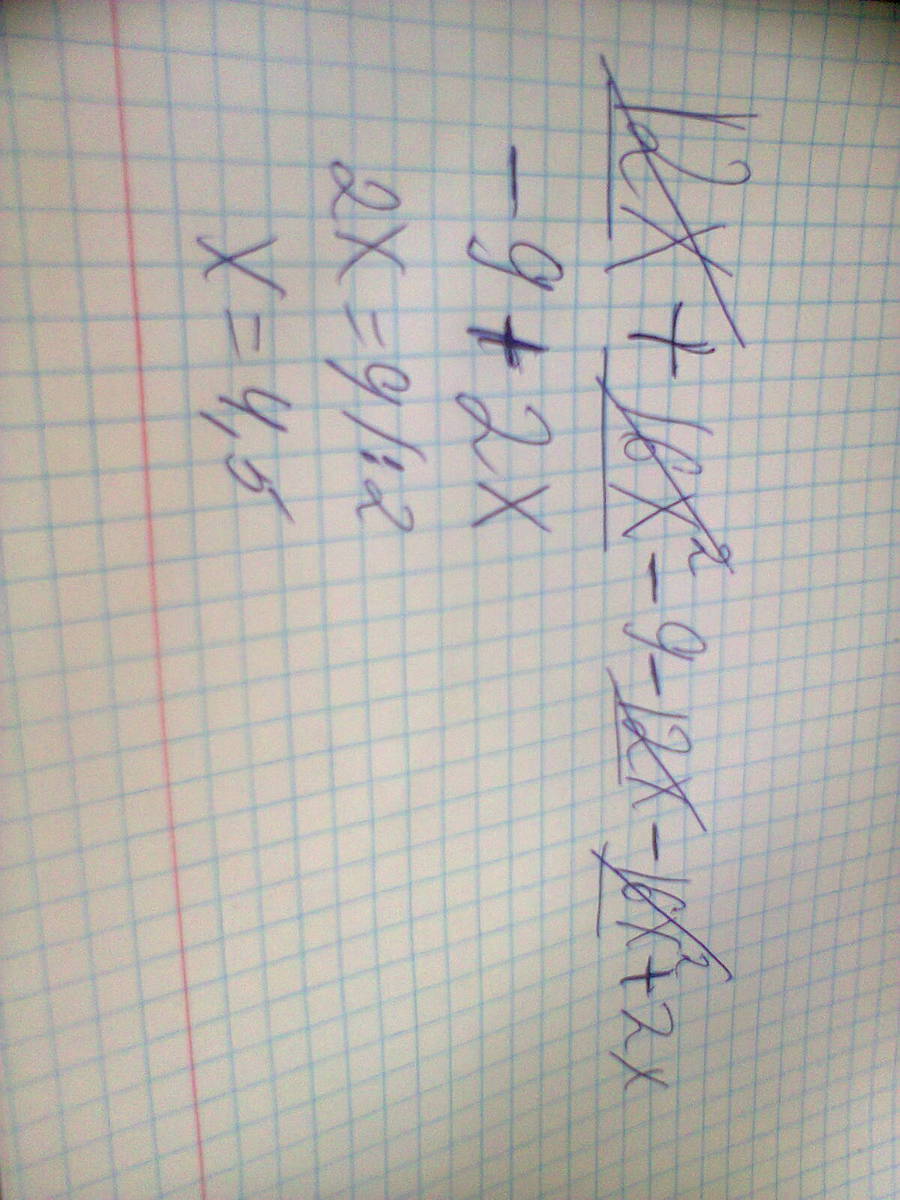 12x + 16x² - 9 - 12x - 16x² + 2x
- 9 + 2x
2x = 9 / : 2
x = 4,5